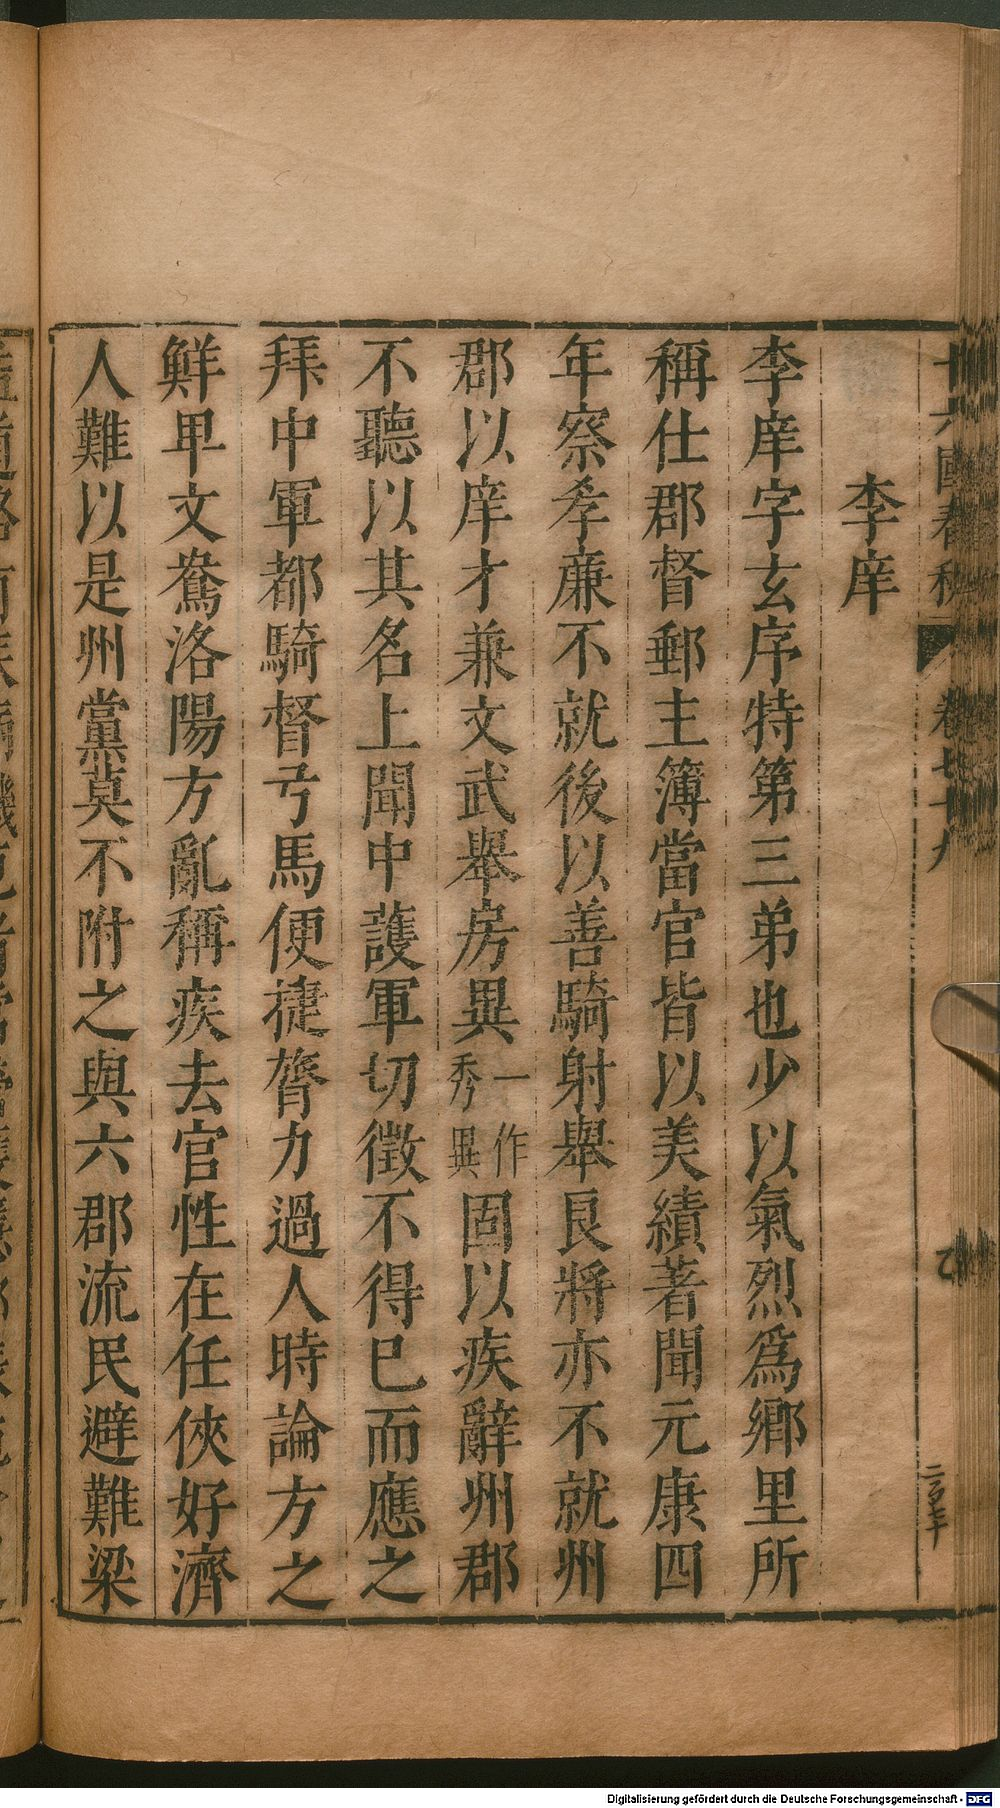 十六國春秋 卷七十九 乙
二百七十
李庠
李庠字玄序特第三弟也少以氣烈爲鄉里所
稱仕郡督郵主簿當官皆以美績著聞元康四
年察孝廉不就後以善騎射舉良將亦不就州
郡以庠才兼文武舉房異一作秀異固以疾辭州郡
不聽以其名上聞中護軍切徵不得已而應之
拜中軍都騎督弓馬便捷膂力過人時論方之
鮮卑文鴦洛陽方亂稱疾去官性在任俠好濟
人難以是州黨莫不附之與六郡流民避難梁
Digitalisierung gefördert durch die Deutsche Forschungsgemeinschaft - DFG